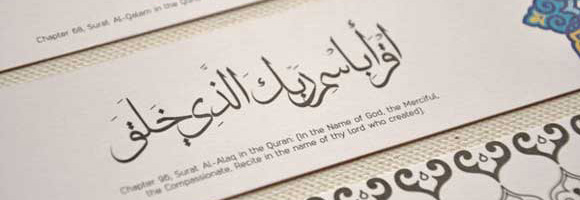 Chapter 68, Surat Al-Qalam in the Qur
اقرأ باسم ربك الذي خلق
Chapter 96, Surat Al-Alaq in the Quran: (In the Name of God, the Merciful,
the Compassionate. Recite in the name of thy lord who created).